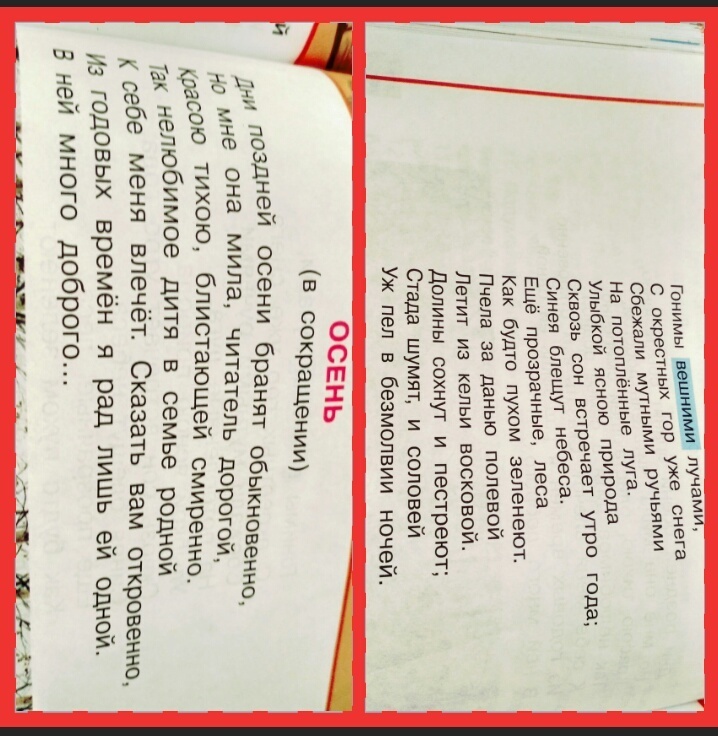 ОСЕНЬ
(в сокращении)
Дни поздней осени бранят обыкновенно,
Но мне она мила, читатель дорогой,
Красою тихою, блистающей смиренно.
Так нелюбимое дитя в семье родной
К себе меня влечёт. Сказать вам откровенно,
Из годовых времён я рад лишь ей одной.
В ней много доброго...
Гонимы вешними лучами,
С окрестных гор уже снега
Сбежали мутными ручьями
На потоплённые луга.
Улыбкой ясною природа
Сквозь сон встречает утро года;
Синея блещут небеса.
Ещё прозрачные, леса
Как будто пухом зеленеют.
Пчела за данью полевой
Летит из кельи восковой.
Долины сохнут и пестреют;
Стада шумят, и соловей
Уж пел в безмолвии ночей.